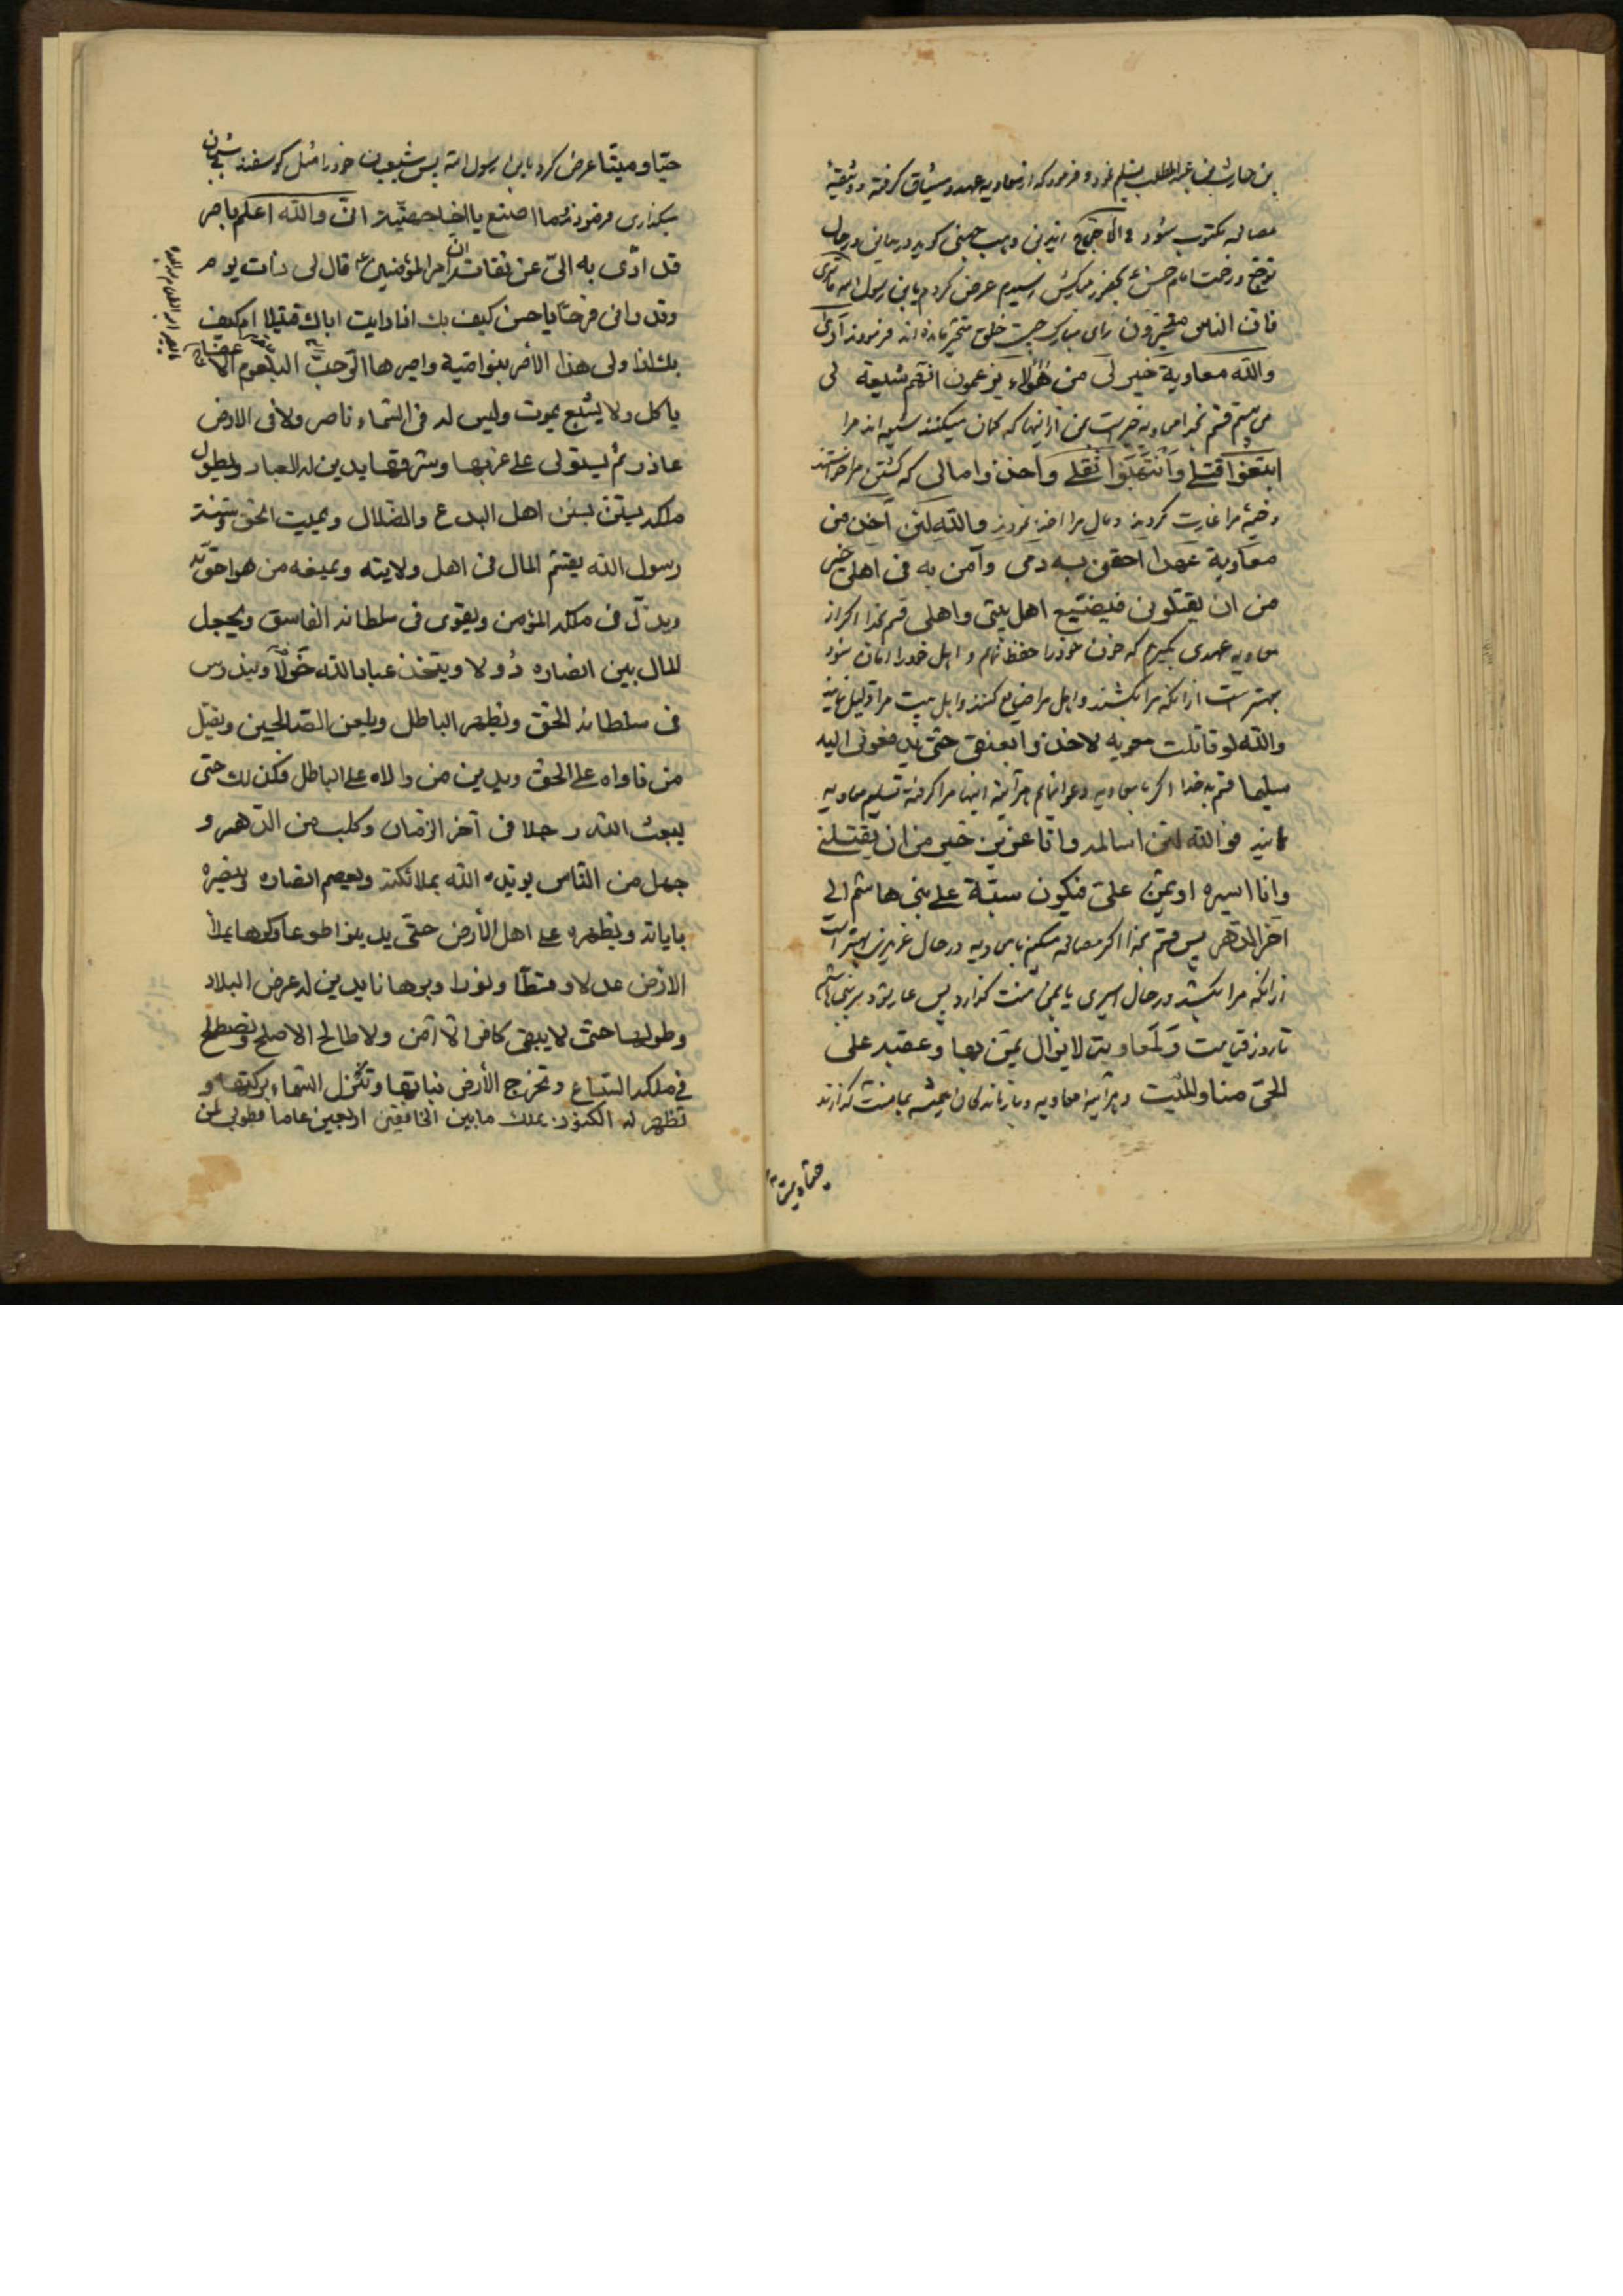 بن حارث بن عبد المطلب تسلیم نمود و فرمود که از معاویه عهد و میثاق گرفته و وثیقهٔ
مصالحه مکتوب شود فی الاحتجاج از زید بن وهب جهنی گوید در مداین در حال
توجع در خدمت امام حسن ع بمحضر مبارکش رسیدم عرض کردم یابن رسول الله ما تری
فان الناس متحیرون رای مبارک چیست خلق متحیر مانده اند فرمودند اری
والله معاویة خیر لی من هؤلاء یزعمون انهم شیعة لی
می بینم قسم بخدا معاویه خیر است بمن از اینها که گمان میکنند شیعه اند مرا
ابتغوا قتلی وانتهبوا ثقلی واخذوا مالی که کشتن مرا خواستند
و خیمهٔ مرا غارت کردند و مال مرا اخذ نمودند والله لئن آخذ من
معاویة عهدا احقن به دمی وآمن به فی اهلی خیر
من ان یقتلونی فیضیع اهل بیتی واهلی قسم بخدا اگر از
معاویه عهدی بگیرم که خون خود را حفظ نمایم و اهل خود را امان شود
بهتر است از آنکه مرا بکشند و اهل مرا ضایع کنند و اهل بیت مرا ذلیل نمایند
والله لو قاتلت معویه لاخذوا بعنقی حتی یدفعونی الیه
سلما قسم به خدا اگر با معاویه دعوا نمایم هر آینه اینها مرا گرفته تسلیم معاویه
نمایند فوالله لئن اسالمه وانا عزیز خیر من ان یقتلنی
وانا اسیره او یمن علی فیکون سبة علی بنی هاشم الی
آخر الدهر پس قسم بخدا اگر مصالحه میکنم با معاویه در حال عزیزی بهتر است
از آنکه مرا بکشد در حال اسیری یا بمن منت گذارد پس عار شود بر بنی هاشم
تا روز قیامت ولمعاویة لا یزال یمن بها وعقبه علی
الحی منا والمیت و هر آینه معاویه و بازماندگان همیشه بما منت گذارند
حیا و میتا
حیا و میتا عرض کرد یابن رسول الله پس شیعیان خود را مثل گوسفند بی شبان
بگذاری فرمودند وما اصنع یا اخا جهنیة انی والله اعلم بامر
قد ادی به الی عن ثقاته ان امیر المؤمنین ع قال لی ذات یوم
وقد رانی فرحا یا حسن کیف بک اذا رایت اباک قتیلا ام کیف
بک اذا ولی هذا الأمر بنو امیة وامیرها الرحب البلعوم الاعفجاج
یاکل ولا یشبع یموت ولیس له فی السماء ناصر ولا فی الارض
عاذر ثم یستولی علی غربها وشرقها یدین له العباد ویطول
ملکه یستن بسنن اهل البدع والضلال ویمیت الحق وسنة
رسول الله یقسم المال فی اهل ولایته ویمنعه من هو احق به
ویذل فی ملکه المؤمن ویقوی فی سلطانه الفاسق ویجعل
المال بین انصاره دُولا ویتخذ عباد الله خَوَلاً ویندرس
فی سلطانه الحق ویظهر الباطل ویلعن الصالحین ویقتل
من ناواه علی الحق ویدین من والاه علی الباطل فکذلک حتی
یبعث الله رجلا فی آخر الزمان وکلب من الدهر و
جهل من الناس یؤیده الله بملائکته ویعصم انصاره وینصره
بایاته ویظهره علی اهل الأرض حتی یدینوا طوعا وکرها یملأ
الارض عدلا وقسطا ونورا وبرهانا یدین له عرض البلاد
وطولها حتی لا یبقی کافر الا آمن ولا طالح الا صلح وتصطلح
فی ملکه السباع وتخرج الأرض نباتها وتنزل السماء برکتها و
تظهر له الکنوز یملک ما بین الخافقین اربعین عاما فطوبی لمن